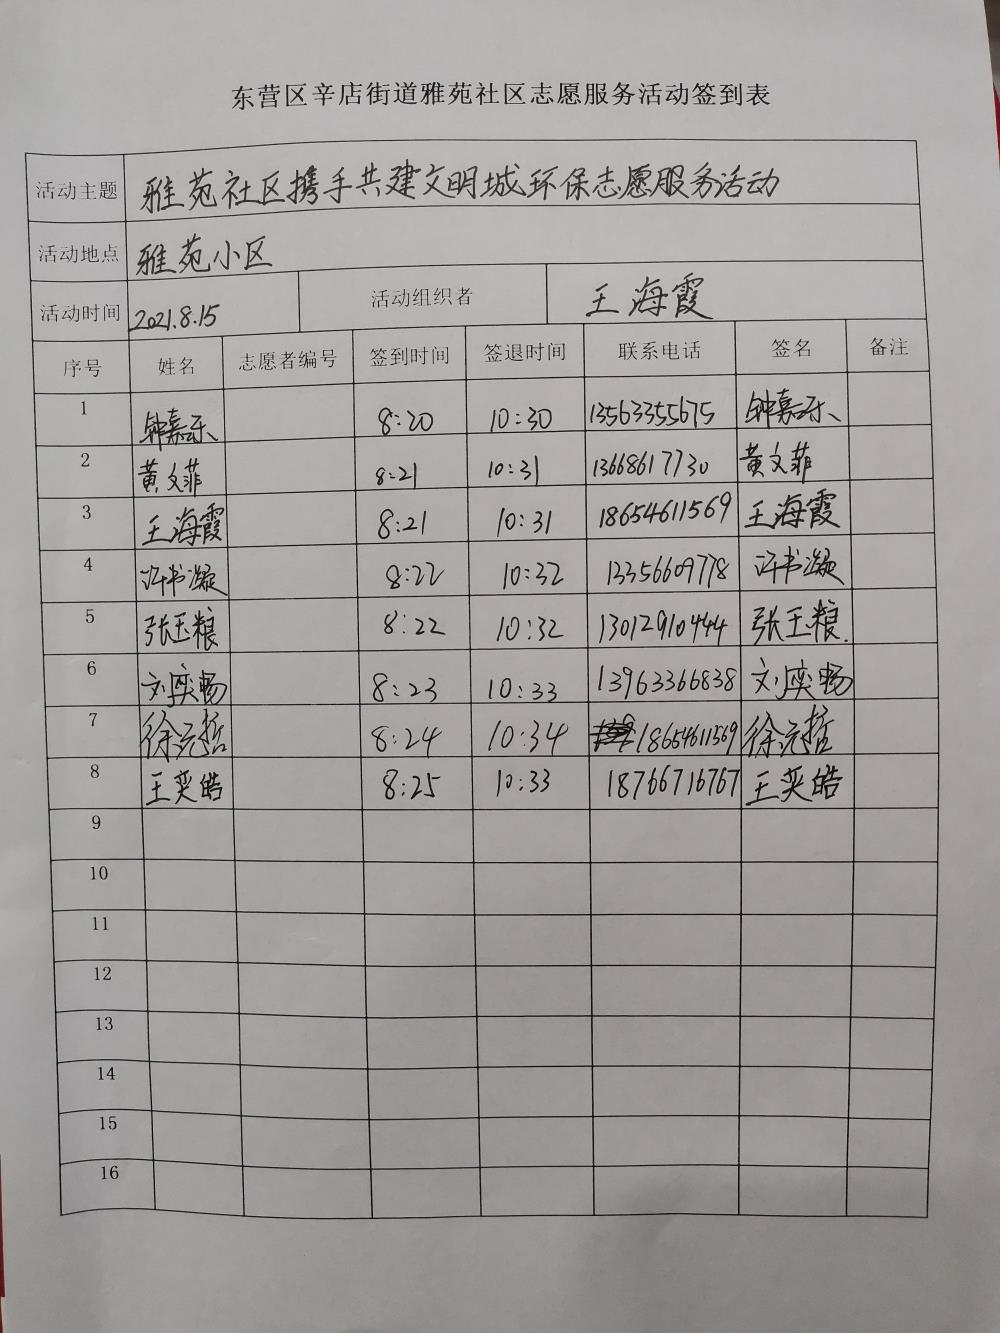 东营区辛店街道雅苑社区志愿服务活动签到表
活动主题 雅苑社区携手共建文明城环保志愿服务活动
活动地点 雅苑小区
活动时间 2021.8.15 活动组织者 王海霞
序号 姓名 志愿者编号 签到时间 签退时间 联系电话 签名 备注
1 钟嘉乐 8:20 10:30 13563355675 钟嘉乐
2 黄文菲 8:21 10:31 13668617730 黄文菲
3 王海霞 8:21 10:31 18654611569 王海霞
4 许书凝 8:22 10:32 13356609778 许书凝
5 张玉粮 8:22 10:32 13012910444 张玉粮.
6 刘奕畅 8:23 10:33 13963366838 刘奕畅
7 徐沅哲 8:24 10:34 18654611569 徐沅哲
8 王奕皓 8:25 10:33 18766716767 王奕皓
9
10
11
12
13
14
15
16